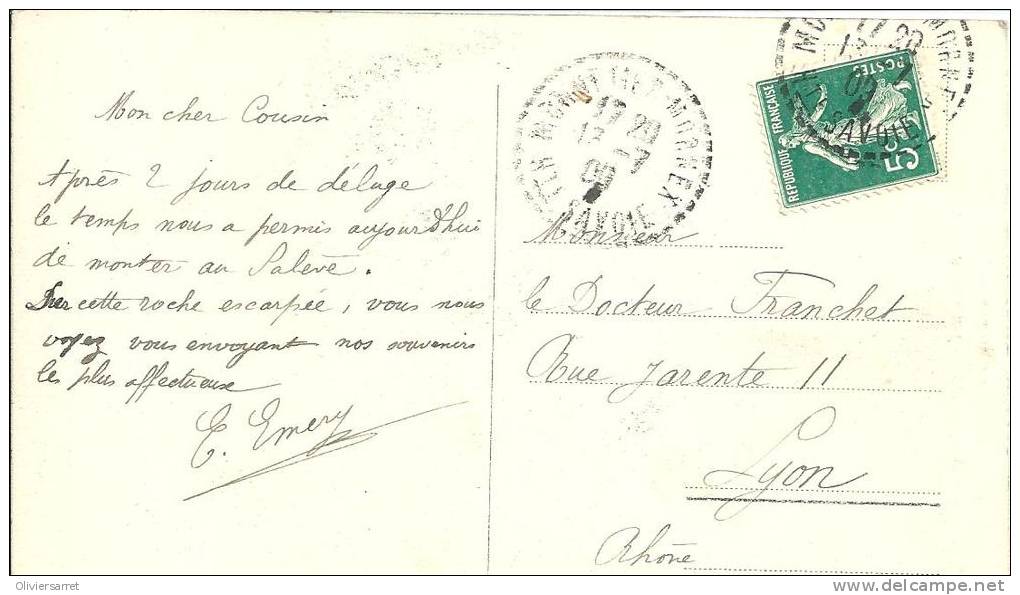 Mon cher Cousin
Après 2 jours de déluge
le temps nous a permis aujourd'hui
de monter au Salève.
Sur cette roche escarpée, vous nous
voyez vous envoyant nos souvenirs
les plus affectueuse
E. Emery
MORNEX
17 20
SAVOIE
MORNEX
17 20
SAVOIE
REPUBLIQUE FRANÇAISE
POSTES
5c
Monsieur
le Docteur Franchet
Rue Jarente 11
Lyon
Rhône
Oliviersarret
http://www.delcampe.net